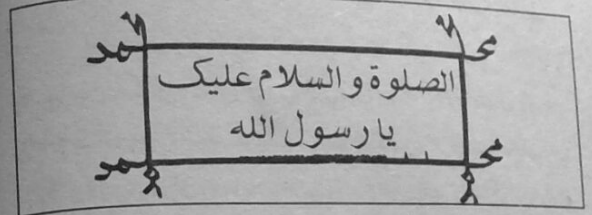 محمد
الصلوة و السلام علیک
یا رسول الله
محمد